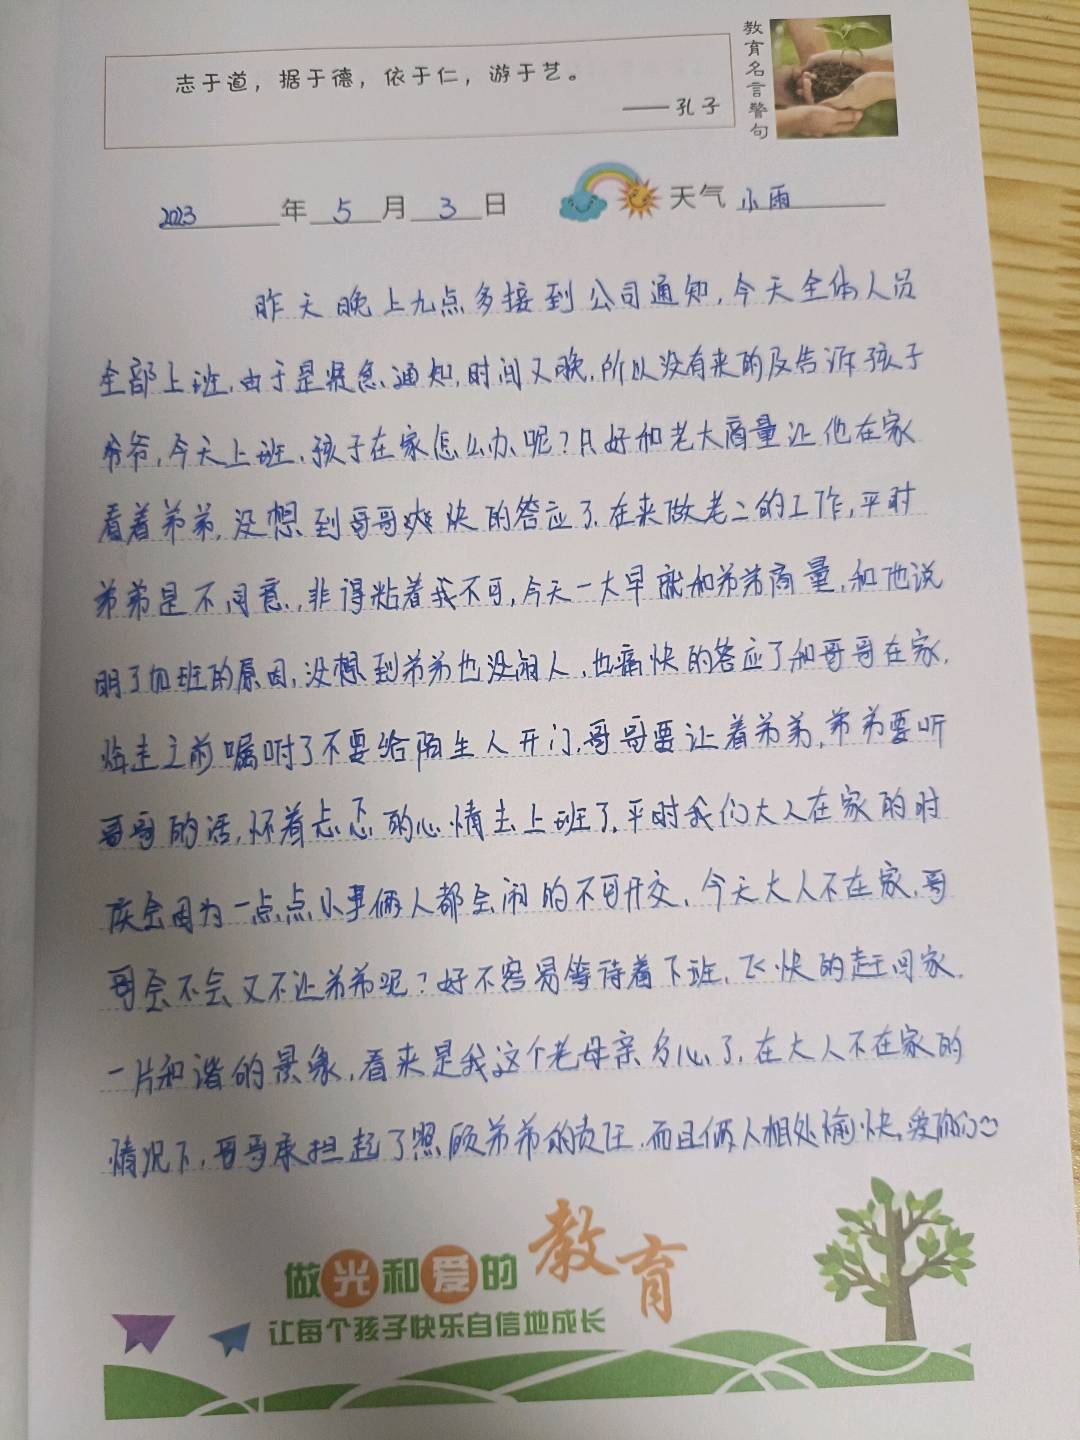 志于道，据于德，依于仁，游于艺。
——孔子
教育名言警句
2023年5月3日 天气 小雨
昨天晚上九点多接到公司通知，今天全体人员
全部上班，由于是紧急通知，时间又晚，所以没有来的及告诉孩子
爷爷，今天上班，孩子在家怎么办呢？只好和老大商量让他在家
看着弟弟，没想到哥哥爽快的答应了，在来做老二的工作，平时
弟弟是不同意，非得粘着我不可，今天一大早就和弟弟商量，和他说
明了加班的原因，没想到弟弟也没闹人，也痛快的答应了和哥哥在家，
临走之前嘱咐了不要给陌生人开门，哥哥要让着弟弟，弟弟要听
哥哥的话，怀着忐忑的心情去上班了，平时我们大人在家的时
候会因为一点点小事俩人都会闹的不可开交，今天大人不在家，哥
哥会不会又不让弟弟呢？好不容易等待着下班，飞快的赶回家，
一片和谐的景象，看来是我这个老母亲多心了，在大人不在家的
情况下，哥哥承担起了照顾弟弟的责任，而且俩人相处愉快，爱你们
做光和爱的教育
让每个孩子快乐自信地成长